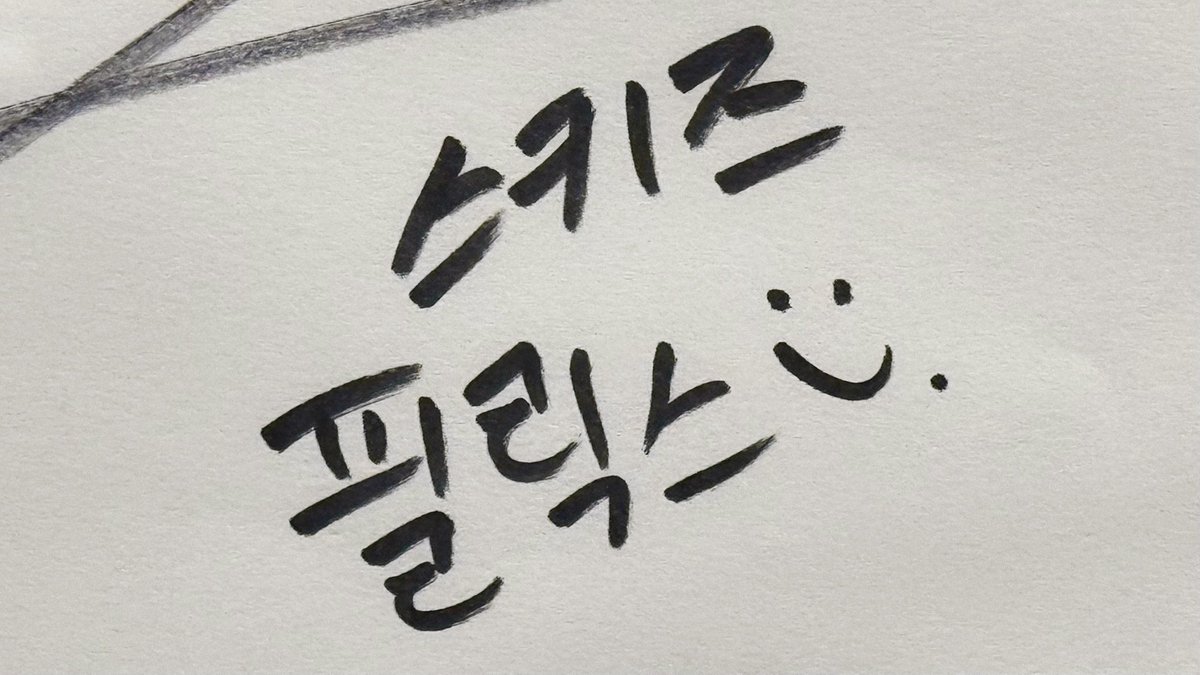 스키즈
필릭스 :).